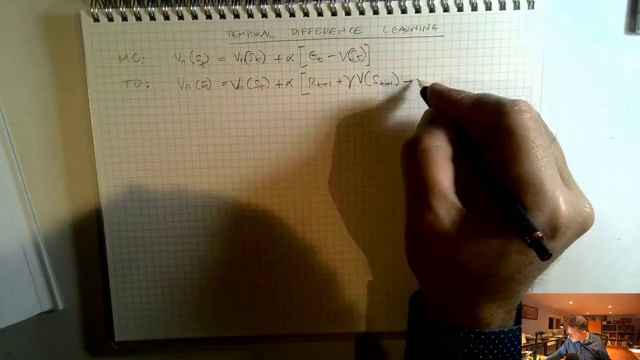 TEMPORAL DIFFERENCE LEARNING
MC: Vπ(St) = Vπ(St) + α [Gt − V(St)]
TD: Vπ(St) = Vπ(St) + α [Rt+1 + γV(St+1) −